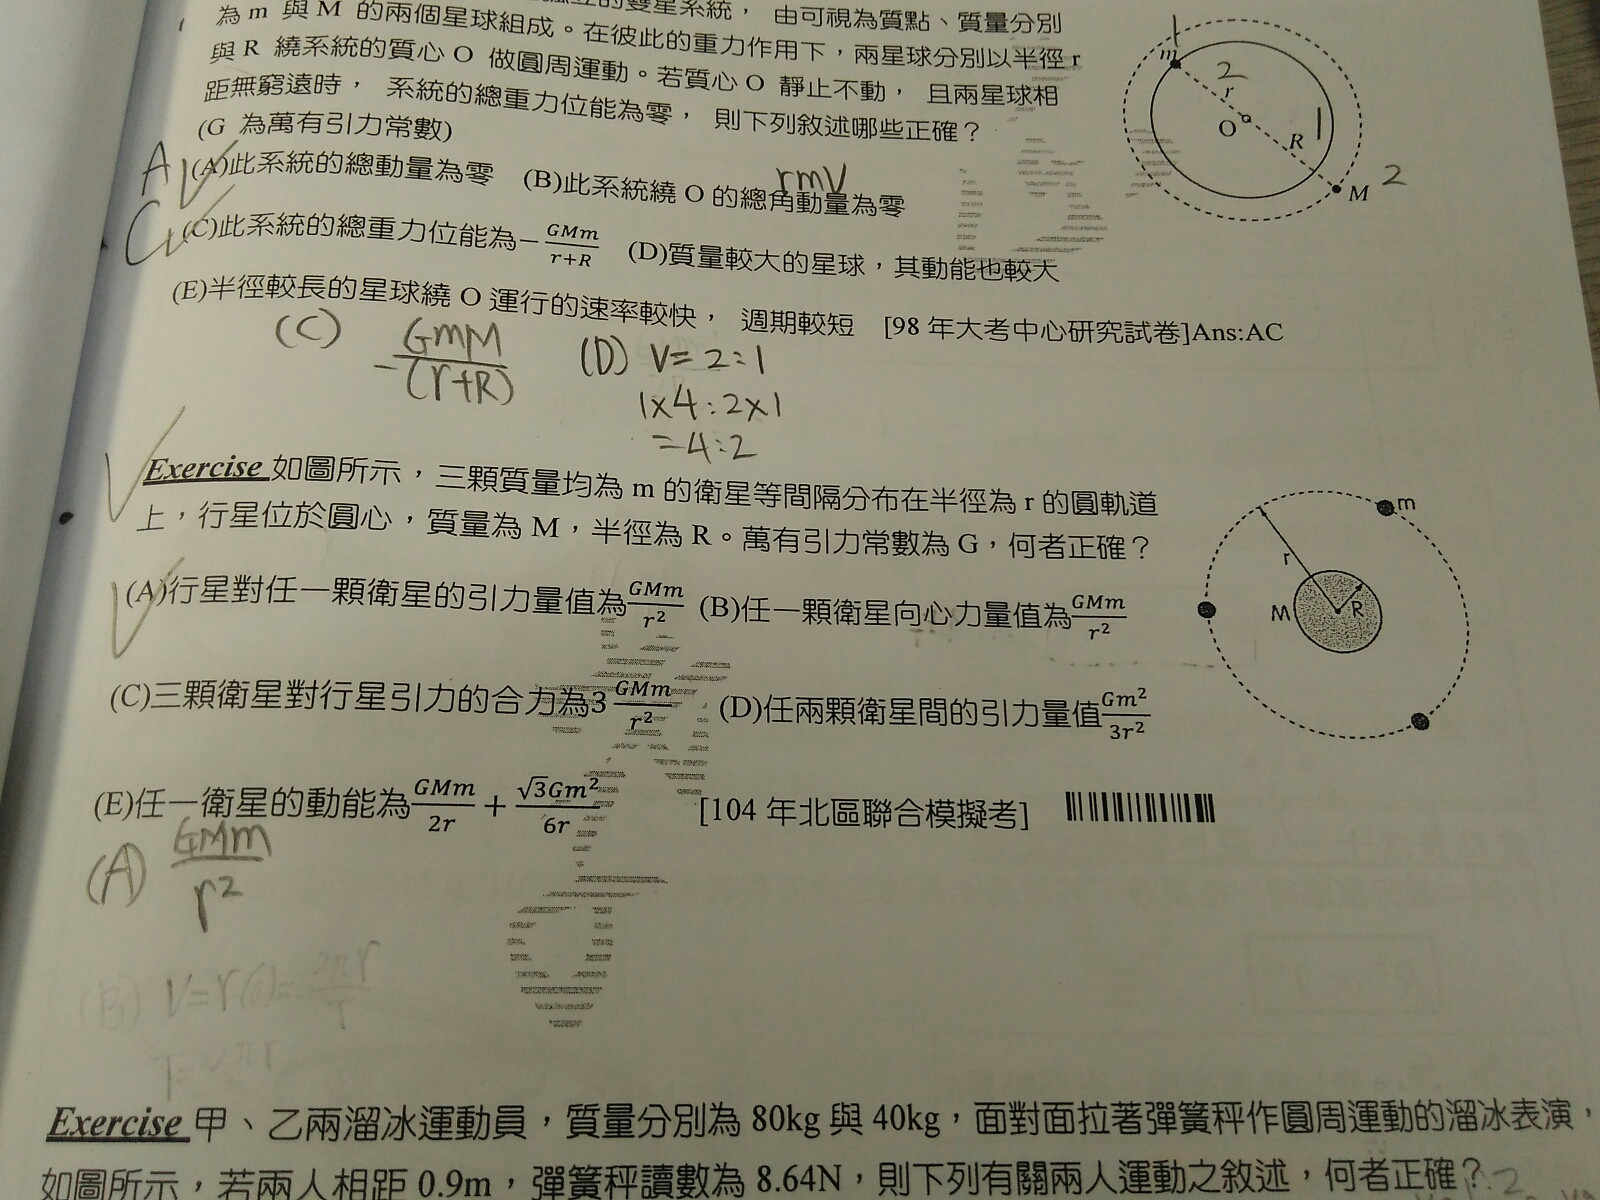 的雙星系統， 由可視為質點、質量分別
為 m 與 M 的兩個星球組成。在彼此的重力作用下，兩星球分別以半徑 r
與 R 繞系統的質心 O 做圓周運動。若質心 O 靜止不動， 且兩星球相
距無窮遠時， 系統的總重力位能為零， 則下列敘述哪些正確？
(G 為萬有引力常數)
m
2
r
O
R
1
M 2
rmv
A (A)此系統的總動量為零 (B)此系統繞 O 的總角動量為零
C (C)此系統的總重力位能為−GMm/r+R (D)質量較大的星球，其動能也較大
(E)半徑較長的星球繞 O 運行的速率較快， 週期較短 [98 年大考中心研究試卷]Ans:AC
(C) GmM/-(r+R) (D) v=2:1
1×4:2×1
=4:2
Exercise 如圖所示，三顆質量均為 m 的衛星等間隔分布在半徑為 r 的圓軌道
上，行星位於圓心，質量為 M，半徑為 R。萬有引力常數為 G，何者正確？
m
r
M R
(A)行星對任一顆衛星的引力量值為GMm/r² (B)任一顆衛星向心力量值為GMm/r²
(C)三顆衛星對行星引力的合力為3GMm/r² (D)任兩顆衛星間的引力量值Gm²/3r²
(E)任一衛星的動能為GMm/2r + √3Gm²/6r [104 年北區聯合模擬考]
(A) GMm/r²
(B) v=rω=2πr/T
Exercise 甲、乙兩溜冰運動員，質量分別為 80kg 與 40kg，面對面拉著彈簧秤作圓周運動的溜冰表演，
如圖所示，若兩人相距 0.9m，彈簧秤讀數為 8.64N，則下列有關兩人運動之敘述，何者正確？